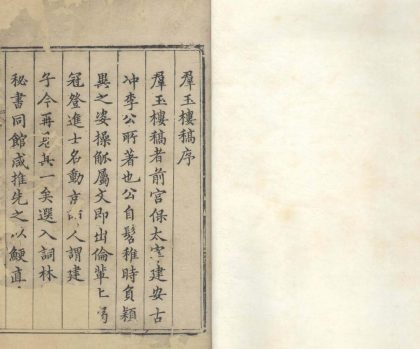 羣玉樓稿序
羣玉樓稿者前宮保太宰建安古
冲李公所著也公自髫稚時負穎
異之姿操觚屬文即出倫輩上
冠登進士名動京人謂建
安今再其一矣選入詞林
秘書同館咸推先之以鯁直